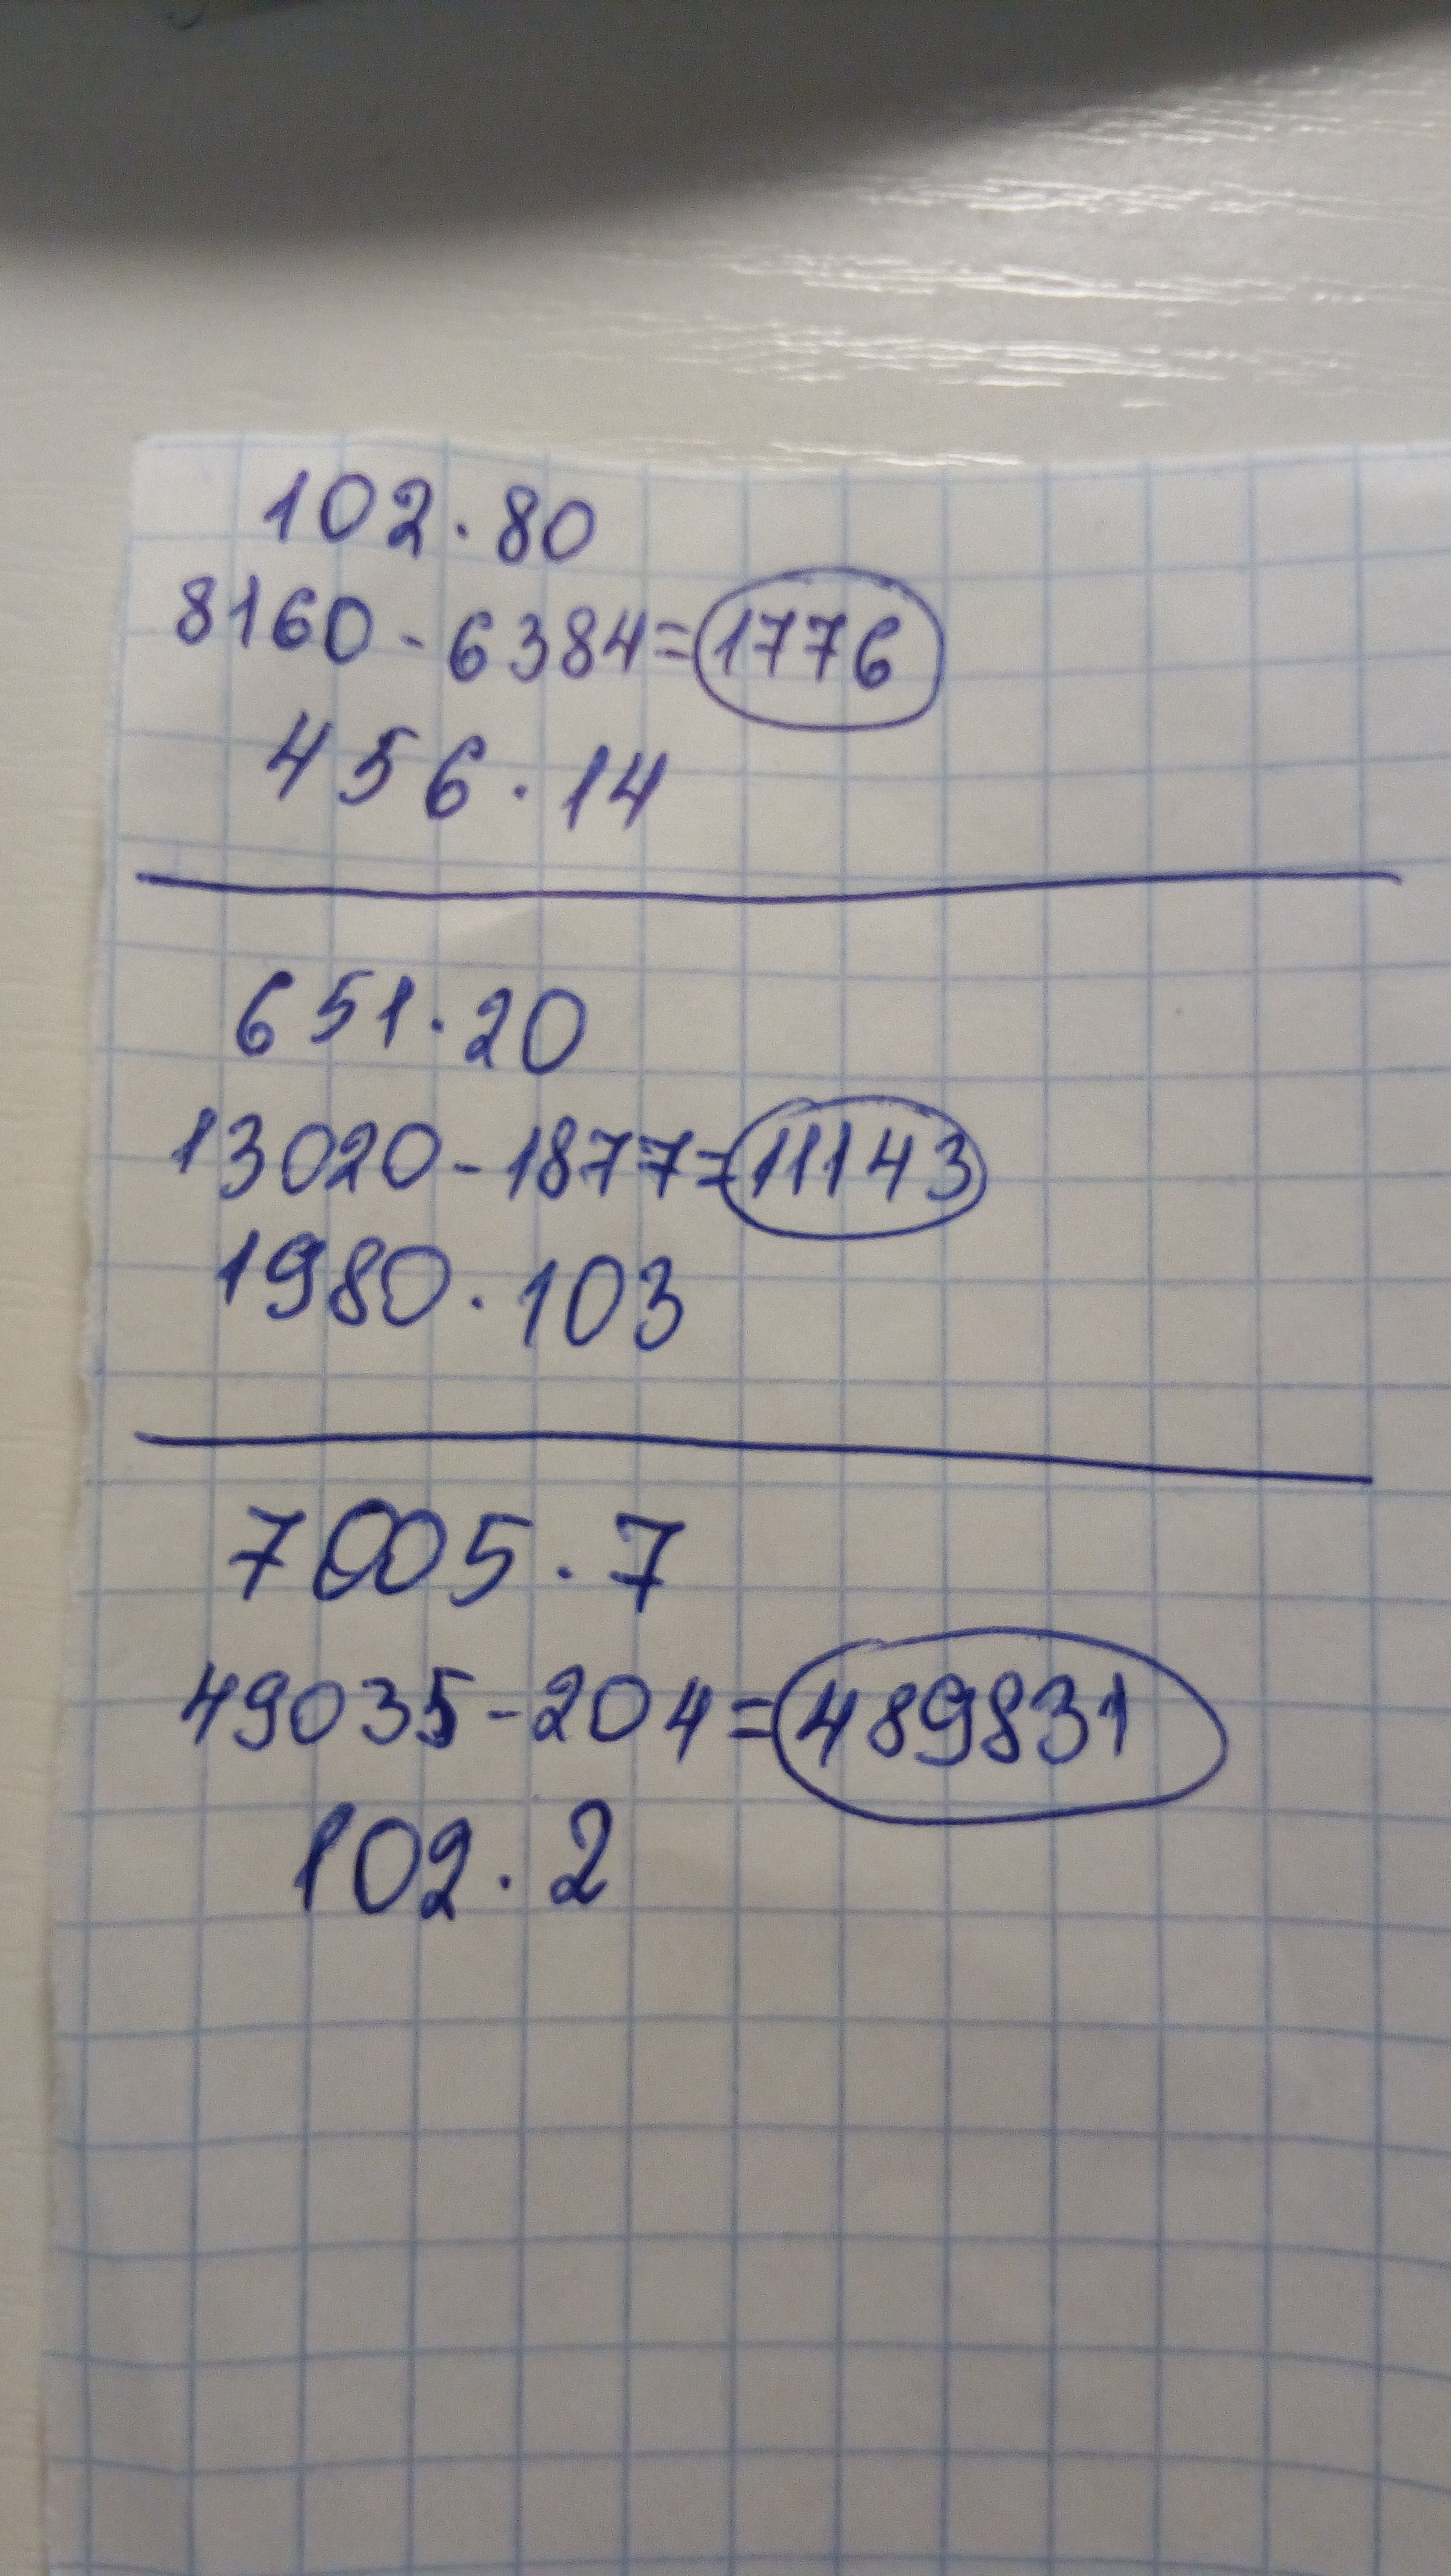 102.80
8160-6384=1776
456.14
651.20
13020-1877=11143
1980.103
7005.7
49035-204=489831
102.2